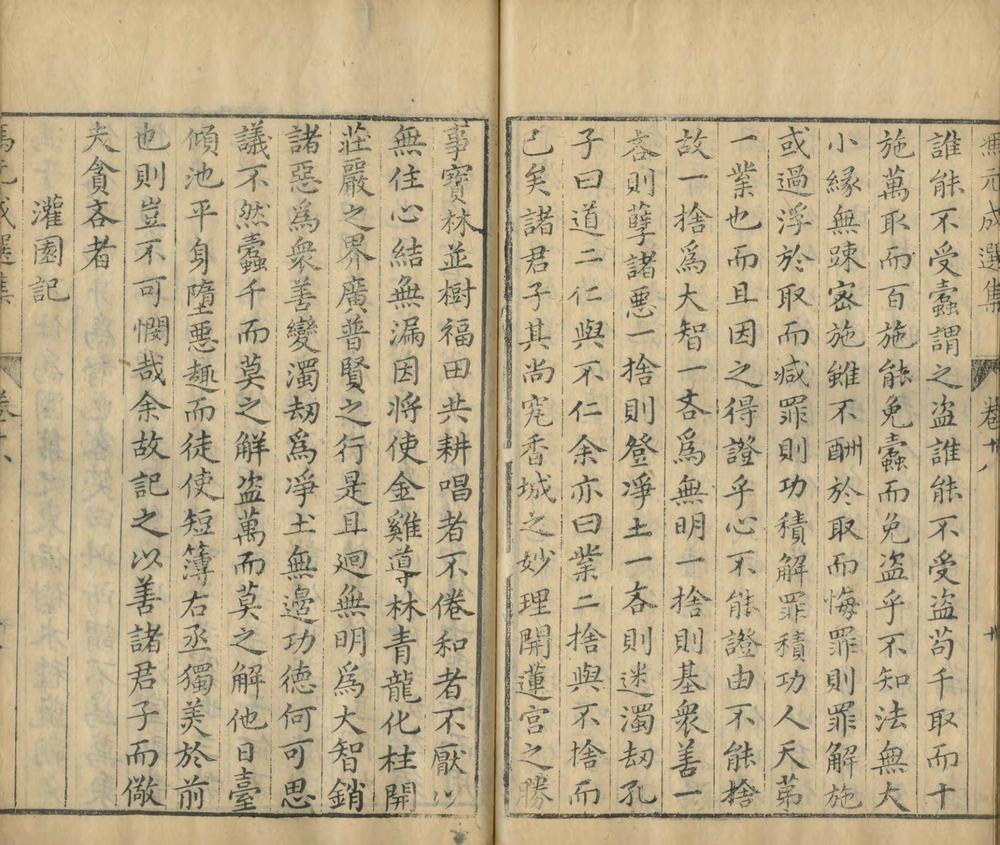 馮元成選集 卷廿八
誰能不受蠧謂之盜誰能不受盜苟千取而十
施萬取而百施能免蠧而免盜乎不知法無大
小緣無踈宻施雖不酬於取而悔罪則罪解施
或過浮於取而减罪則功積解罪積功人天苐
一業也而且因之得證乎心不能證由不能捨
故一捨爲大智一吝爲無明一捨則基衆善一
吝則孽諸惡一捨則登凈土一吝則迷濁刧孔
子曰道二仁與不仁余亦曰業二捨與不捨而
已矣諸君子其尚究香城之妙理開蓮宮之勝
事寳林並樹福田共耕唱者不倦和者不厭以
無住心結無漏因將使金雞導林青龍化柱開
莊嚴之界廣普賢之行是且迴無明爲大智銷
諸惡爲衆善變濁刧爲凈土無邊功徳何可思
議不然蠧千而莫之解盜萬而莫之解他日臺
傾池平身墮惡趣而徒使短簿右丞獨美於前
也則豈不可憫哉余故記之以善諸君子而儆
夫貪吝者
灌園記
馮元成選集